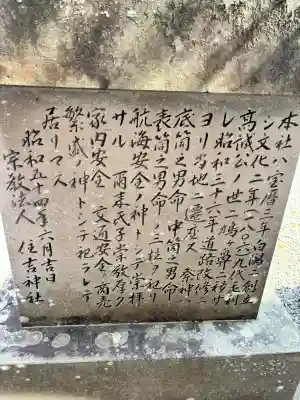 本社ハ宝暦三年白潟ニ創立
シ文化二年(一八〇六)九代毛利
高誠公ノ世ニ鳩ヶ
レ昭和三十八年道路改修ニ
ヨリ当地ニ遷座ス 祭神ハ
底筒之男命 中筒之男命
表筒之男命ノ三柱ヲ祀リ
航海安全ノ神トシテ崇拝
サル 爾来氏子崇敬厚ク
家内安全 交通安全 商売
繁盛ノ神トシテ祀ラレテ
居リマス
昭和五十四年六月吉日
宗教法人 住吉神社